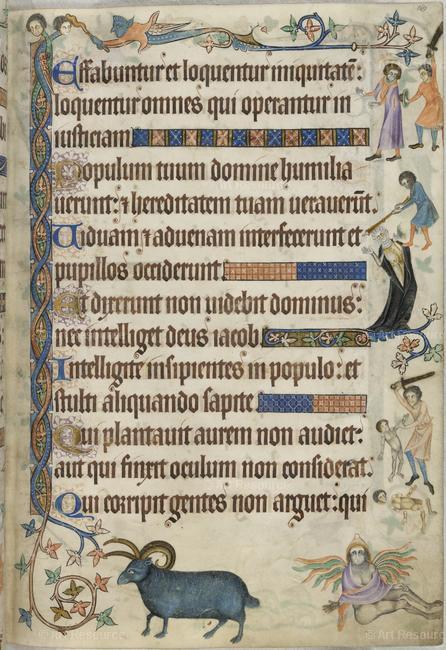 Effabuntur et loquentur iniquitatē:
loquentur omnes qui operantur in
iusticiam
Populum tuum domine humilia
uerunt: ⁊ hereditatem tuam uexauerūt.
Uiduam ⁊ aduenam interfecerunt et
pupillos occiderunt.
Et dixerunt non uidebit dominus:
nec intelliget deus iacob.
Intelligite insipientes in populo: et
stulti aliquando sapite
Qui plantauit aurem non audiet:
aut qui finxit oculum non considerat.
Qui corripit gentes non arguet: qui
© Art Resource
© Art Resource